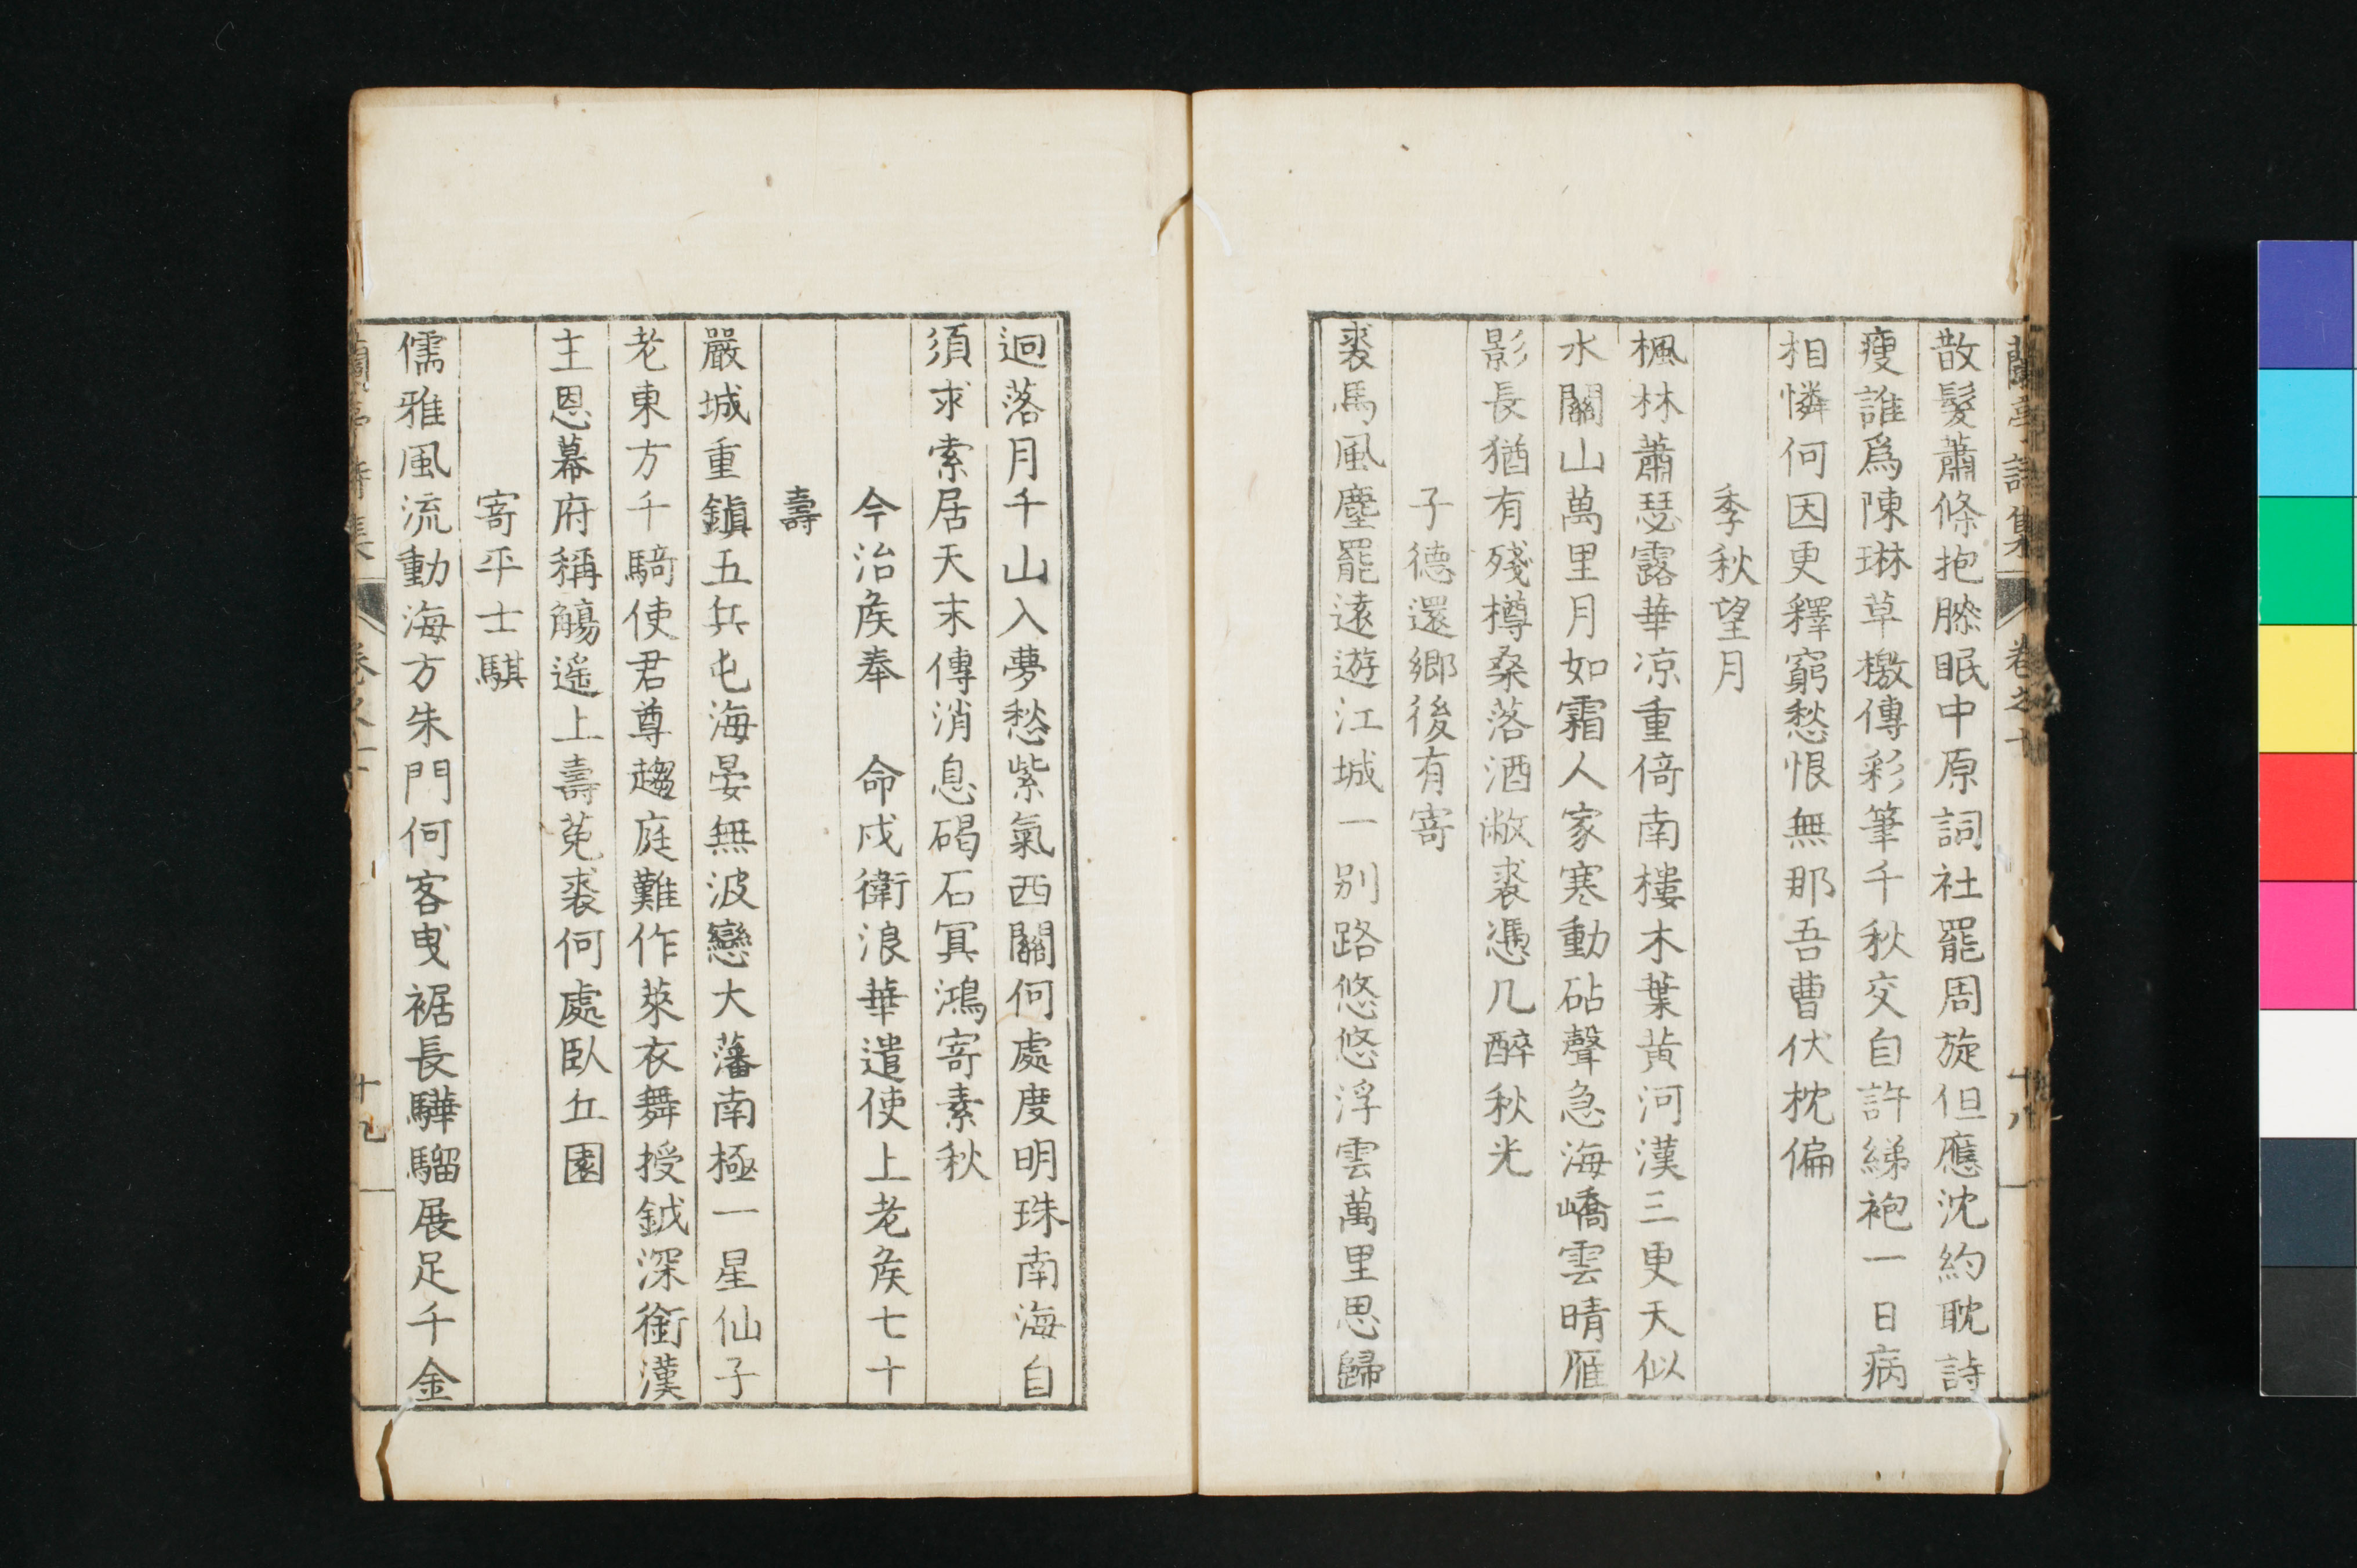 蘭亭詩集 卷之十 十八
散髮蕭條抱膝眠中原詞社罷周旋但應沈約耽詩
瘦誰爲陳琳草檄傳彩筆千秋交自許綈袍一日病
相憐何因更釋窮愁恨無那吾曹伏枕偏
季秋望月
楓林蕭瑟露華凉重倚南樓木葉黃河漢三更天似
水關山萬里月如霜人家寒動砧聲急海嶠雲晴雁
影長猶有殘樽桑落酒敝裘憑几醉秋光
子德還鄉後有寄
裘馬風塵罷遠遊江城一別路悠悠浮雲萬里思歸
迥落月千山入夢愁紫氣西關何處度明珠南海自
須求索居天末傳消息碣石冥鴻寄素秋
今治矦奉 命戍衛浪華遣使上老矦七十
壽
嚴城重鎭五兵屯海晏無波戀大藩南極一星仙子
老東方千騎使君尊趨庭難作萊衣舞授鉞深銜漢
主恩幕府稱觴遙上壽菟裘何處臥丘園
寄平士騏
儒雅風流動海方朱門何客曳裾長驊騮展足千金
蘭亭詩集 卷之十 十九